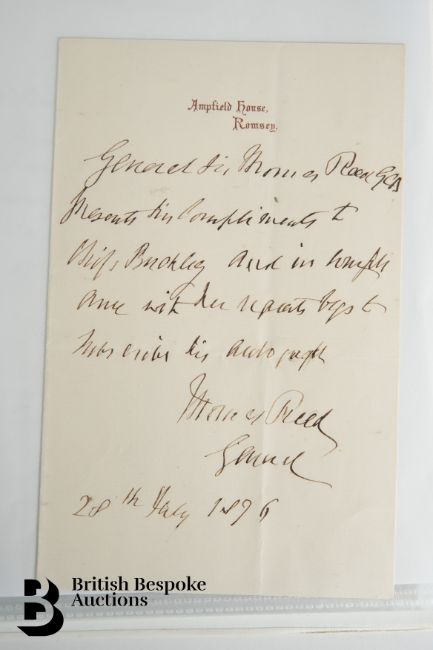 Ampfield House,
Romsey.
General Sir Thomas Reed GCB
Presents his Compliments to
Miss Buckley and in compli
ance with her request begs to
subscribe his autograph
Thomas Reed
General
28th July 1876
B
British Bespoke
Auctions